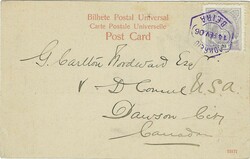 Bilhete Postal Universal
Carte Postale Universelle
Post Card
14 FEV. 06
BEIRA
G. Carlton Woodward Esq
U.S.A
Dawson City
Canada